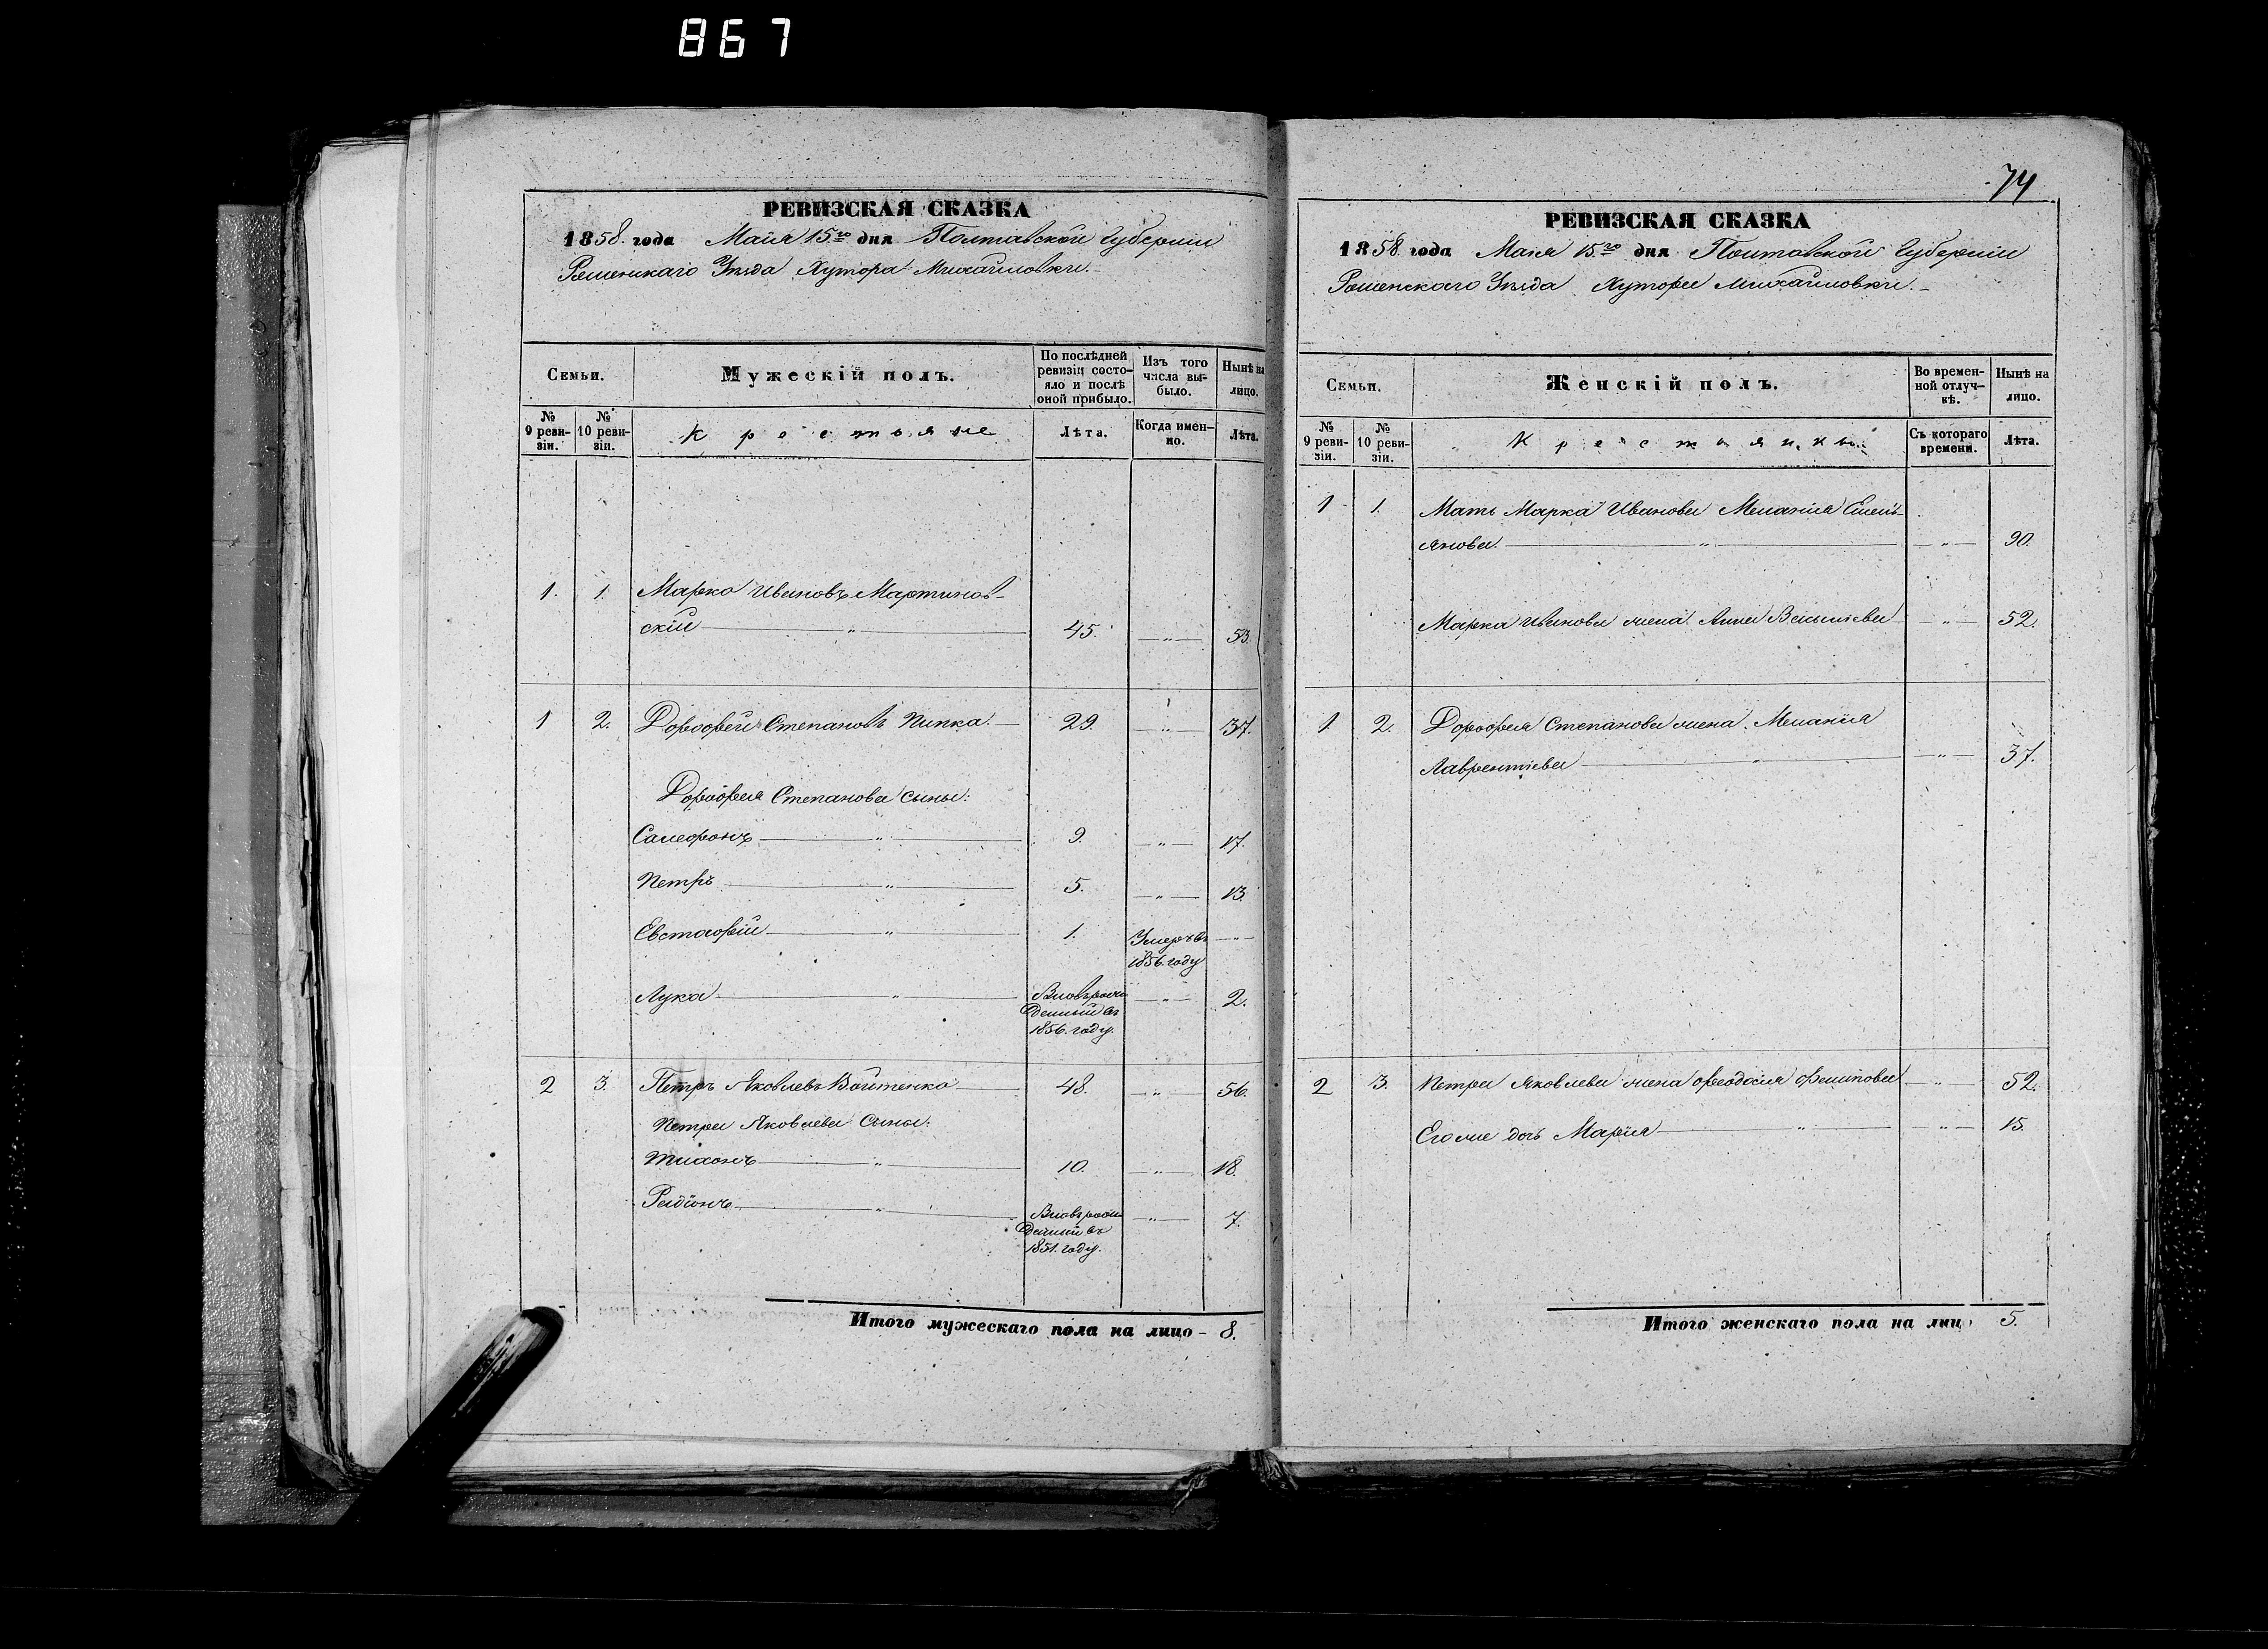 867
74
РЕВИЗСКАЯ СКАЗКА
1858. года Маия 15го дня Полтавской Губерніи
Роменскаго Уѣзда Хутора Михайловки.
Семьи.
Мужескій полъ.
По послѣдней ревизіи состо-
яло и послѣ
оной прибыло.
Изъ того
числа вы-
было.
Нынѣ на
лицо.
№
9 реви-
зіи.
№
10 реви-
зіи.
Крестьяне
Лѣта.
Когда имен-
но.
Лѣта.
1. 1. Марко Ивановъ Мартинов-
скій " 45. " 53.
1 2. Дорофей Степановъ Пипка. 29. " 37.
Дорофея Степанова сыны:
" 9. " 17.
Петръ " 5. " 13.
Евстафій " 1. Умеръ въ
1856. году "
Лука " Вновьрож
денный въ
1856. году. " 2.
2 3. Петръ Яковлевъ Войтенко 48. " 56.
Петра Яковлева Сыны:
Тихонъ " 10. " 18.
Родіонъ " Вновьрож
денный въ
1851. году. " 7.
Итого мужескаго пола на лицо - 8.
РЕВИЗСКАЯ СКАЗКА
1858. года Маия 15го дня Полтавской Губерніи
Роменскаго Уѣзда Хутора Михайловки.
Семьи.
Женскій полъ.
Во времен-
ной отлуч-
кѣ.
Нынѣ на
лицо.
№
9 реви-
зіи.
№
10 реви-
зіи.
Крестьянки.
Съ котораго
времени.
Лѣта.
1 1. Мать Марка Иванова Меланія Емель-
янова. " " 90.
Марка Иванова жена Анна Васильева " 52.
1. 2. Дорофея Степанова жена Меланія
Лаврентіева " " 37.
2 3. Петра Яковлева жена Феодосія Филипова " 52.
Его же дочь Марія " " 15.
Итого женскаго пола на лиц 5.